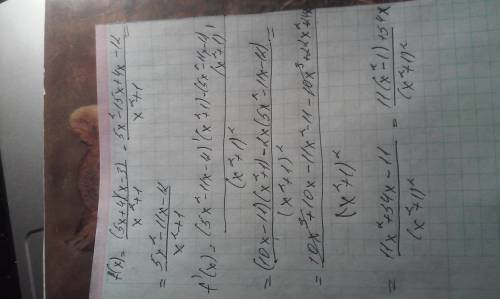 f(x) = (5x+4)(x-3) / x²+1 = 5x²-15x+4x-12 / x²+1 =
= 5x²-11x-12 / x²+1
f'(x) = (5x²-11x-12)'(x²+1)-(5x²-11x-12)(x²+1)' / (x²+1)²
= (10x-11)(x²+1)-2x(5x²-11x-12) / (x²+1)² =
= 10x³+10x-11x²-11-10x³+22x²+24x / (x²+1)²
= 11x²+34x-11 / (x²+1)² = 11(x²-1)+34x / (x²+1)²